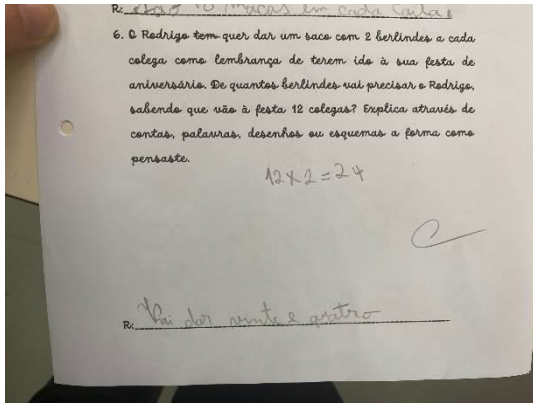 R: São 10 maçãs em cada caixa.
6. O Rodrigo tem quer dar um saco com 2 berlindes a cada
colega como lembrança de terem ido à sua festa de
aniversário. De quantos berlindes vai precisar o Rodrigo,
sabendo que vão à festa 12 colegas? Explica através de
contas, palavras, desenhos ou esquemas a forma como
pensaste.
12x2=24
C
R: Vai dar vinte e quatro